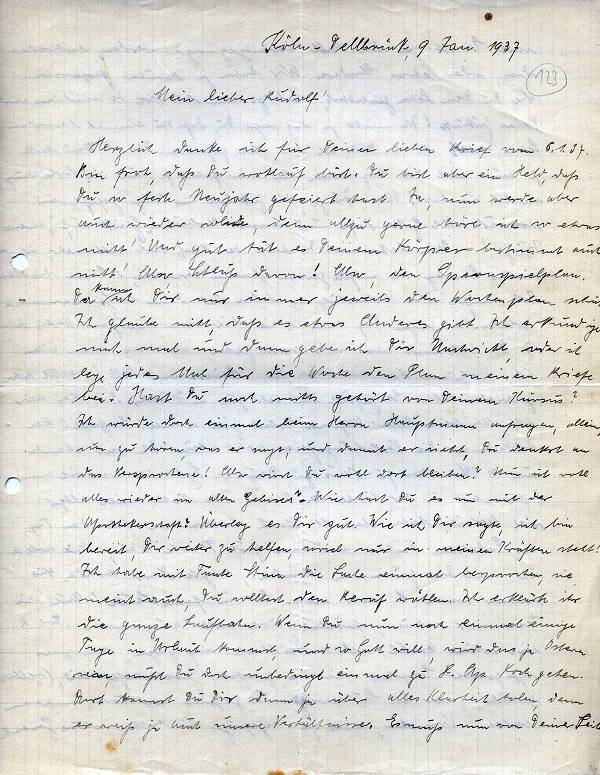 Köln-Dellbrück, 9 Jan. 1937
123
Mein lieber Rudolf!
Herzlich danke ich für Deinen lieben Brief vom 6.1.37.
Bin froh, daß Du wohlauf bist. Du bist aber ein Held, daß
Du so fein Neujahr gefeiert hast. Na, nun werde aber
auch wieder solide, denn allzu gerne höre ich so etwas
nicht! Und gut tut es Deinem Körper bestimmt auch
nicht! Also Schluß davon! Also, den Opernspielplan.
Da kann ich Dir nur immer jeweils den Wochenplan
Ich glaube nicht, daß es etwas Anderes gibt. Ich erkundige
mich mal und dann gebe ich Dir Nachricht, oder ich
lege jedes Mal für die Woche den Plan meinem Briefe
bei. Hast Du noch nichts gehört von Deinem Kursus?
Ich würde doch einmal beim Herrn Hauptmann anfragen, allein
um zu hören was er sagt, und damit er sieht, Du denkst an
das Versprochene! Also wirst Du wohl dort bleiben? Nun ist wohl
alles wieder im alten Geleise? Wie hast Du es nun mit der
Apothekerschaft? Überleg es Dir gut. Wie ich Dir sagte, ich bin
bereit, Dir weiter zu helfen, soviel nur in meinen Kräften steht!
Ich habe mit Tante Stina die Sache einmal besprochen, sie
meint auch, Du solltest den Beruf wählen. Ich erklärte ihr
die ganze Laufbahn. Wenn Du nun noch einmal einige
Tage in Urlaub kommst, und so Gott will, wird das ja Ostern
mußt Du doch unbedingt einmal zu H. Ap. Koch gehen.
Dort kannst Du Dir dann ja über alles Klarheit holen, denn
er weiß ja auch unsere Verhältnisse. Es muß nun von Deiner Seite